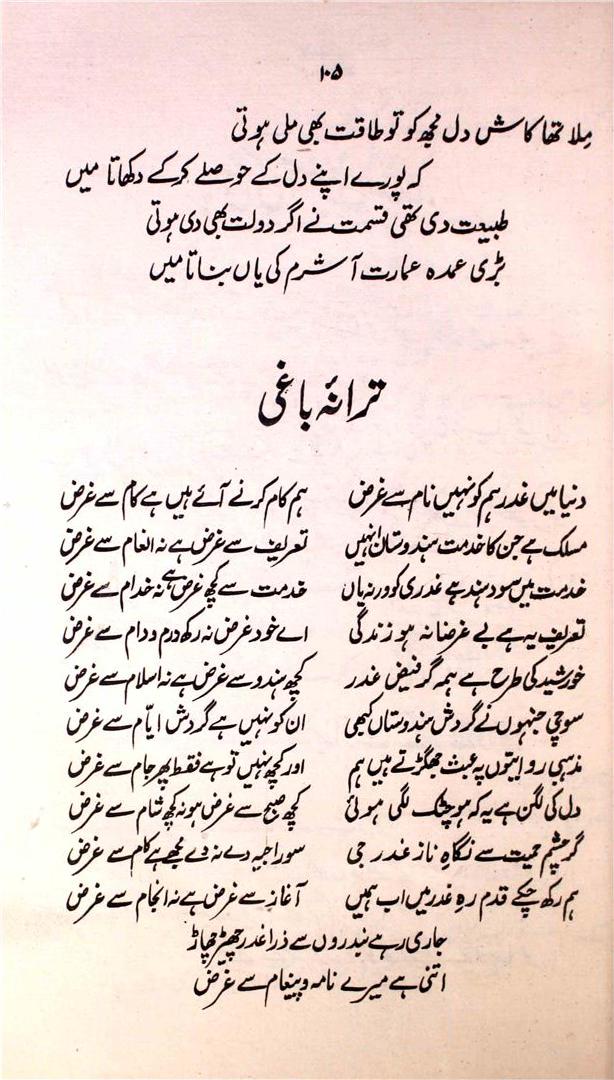 ۱۰۵
مِلا تھا کاش دل مجھ کو تو طاقت بھی ملی ہوتی
کہ پورے اپنے دل کے حوصلے کرکے دکھاتا میں
طبیعت دی تھی قسمت نے اگر دولت بھی دی ہوتی
بڑی عمدہ عمارت آشرم کی یاں بناتا میں
ترانۂ باغی
دنیا میں غدر ہم کو نہیں نام سے غرض ہم کام کرنے آئے ہیں ہے کام سے غرض
مسلک ہے جن کا خدمت ہندوستاں انہیں تعریف سے غرض ہے نہ انعام سے غرض
خدمت میں سود مند ہے غدری کو ورنہ یاں خدمت سے کچھ غرض ہے نہ خدام سے غرض
تعریف یہ ہے بے غرضانہ ہو زندگی اے خود غرض نہ رکھ درم و دام سے غرض
خورشید کی طرح ہے ہمہ گر فیض غدر کچھ ہندو سے غرض ہے نہ اسلام سے غرض
سوچی جنہوں نے گردش ہندوستاں کبھی ان کو نہیں ہے گردش ایّام سے غرض
مذہبی روایتوں پہ عبث جھگڑتے ہیں ہم اور کچھ نہیں تو ہے فقط پھر جام سے غرض
دل کی لگن ہے یہ کہ ہو چٹک لگی ہوئی کچھ صبح سے غرض ہو نہ کچھ شام سے غرض
گر چشم حمیت سے نگاہِ ناز غدر جی سوراجیہ دے نہ دے مجھے ہے کام سے غرض
ہم رکھ چکے قدم رہِ غدر میں اب ہمیں آغاز سے غرض ہے نہ انجام سے غرض
جاری رہے لیڈروں سے ذرا غدر چھیڑ چھاڑ
اتنی ہے میرے نامہ و پیغام سے غرض